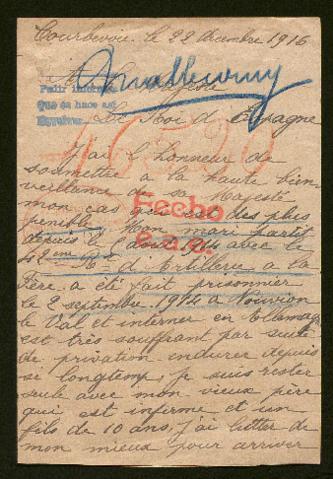 Courbevoie le 22 decembre 1916
A Sa Majesté
Pedir informe
que se hace así
Le Roi d'Espagne
J'ai l'honneur de
soumettre a la haute bien
veillance de sa Majesté
mon cas qui est des plus
Fecho
penible Mon mari partit
depuis le août 1914 avec le
42eme Rt d'Artillerie a la
Fère a été fait prisonnier
le 2 septembre 1914 a Nouvion
le Val et interner en Allemag
est très souffrant par suite
de privation endurer depuis
se longtemp, je suis rester
seule avec mon vieux père
qui est infirme et un
fils de 10 ans, j'ai lutter de
mon mieux pour arriver